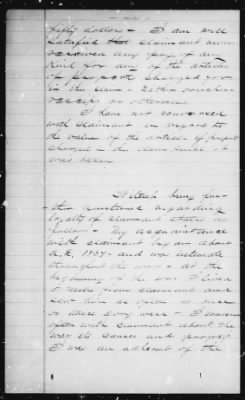 fifty dollars - I am well
satisfied that claimant never
received any pay of any
kind for any of the articles
of property charged for
in the claim - Either voucher
receipt or otherwise
I have not conversed
with claimant in regard to
the value of the articles of property
charged in the claim since it
was taken
Witness being fur-
ther questioned regarding
loyalty of claimant states as
follows - My acquaintance
with claimant began about
A.D. 1837 - and was intimate
throughout the war - at the
beginning of the war I lived
miles from claimant and
saw him as often as once
or twice every week - I conversed
often with claimant about the
war its causes and progress
I was an adherent of the